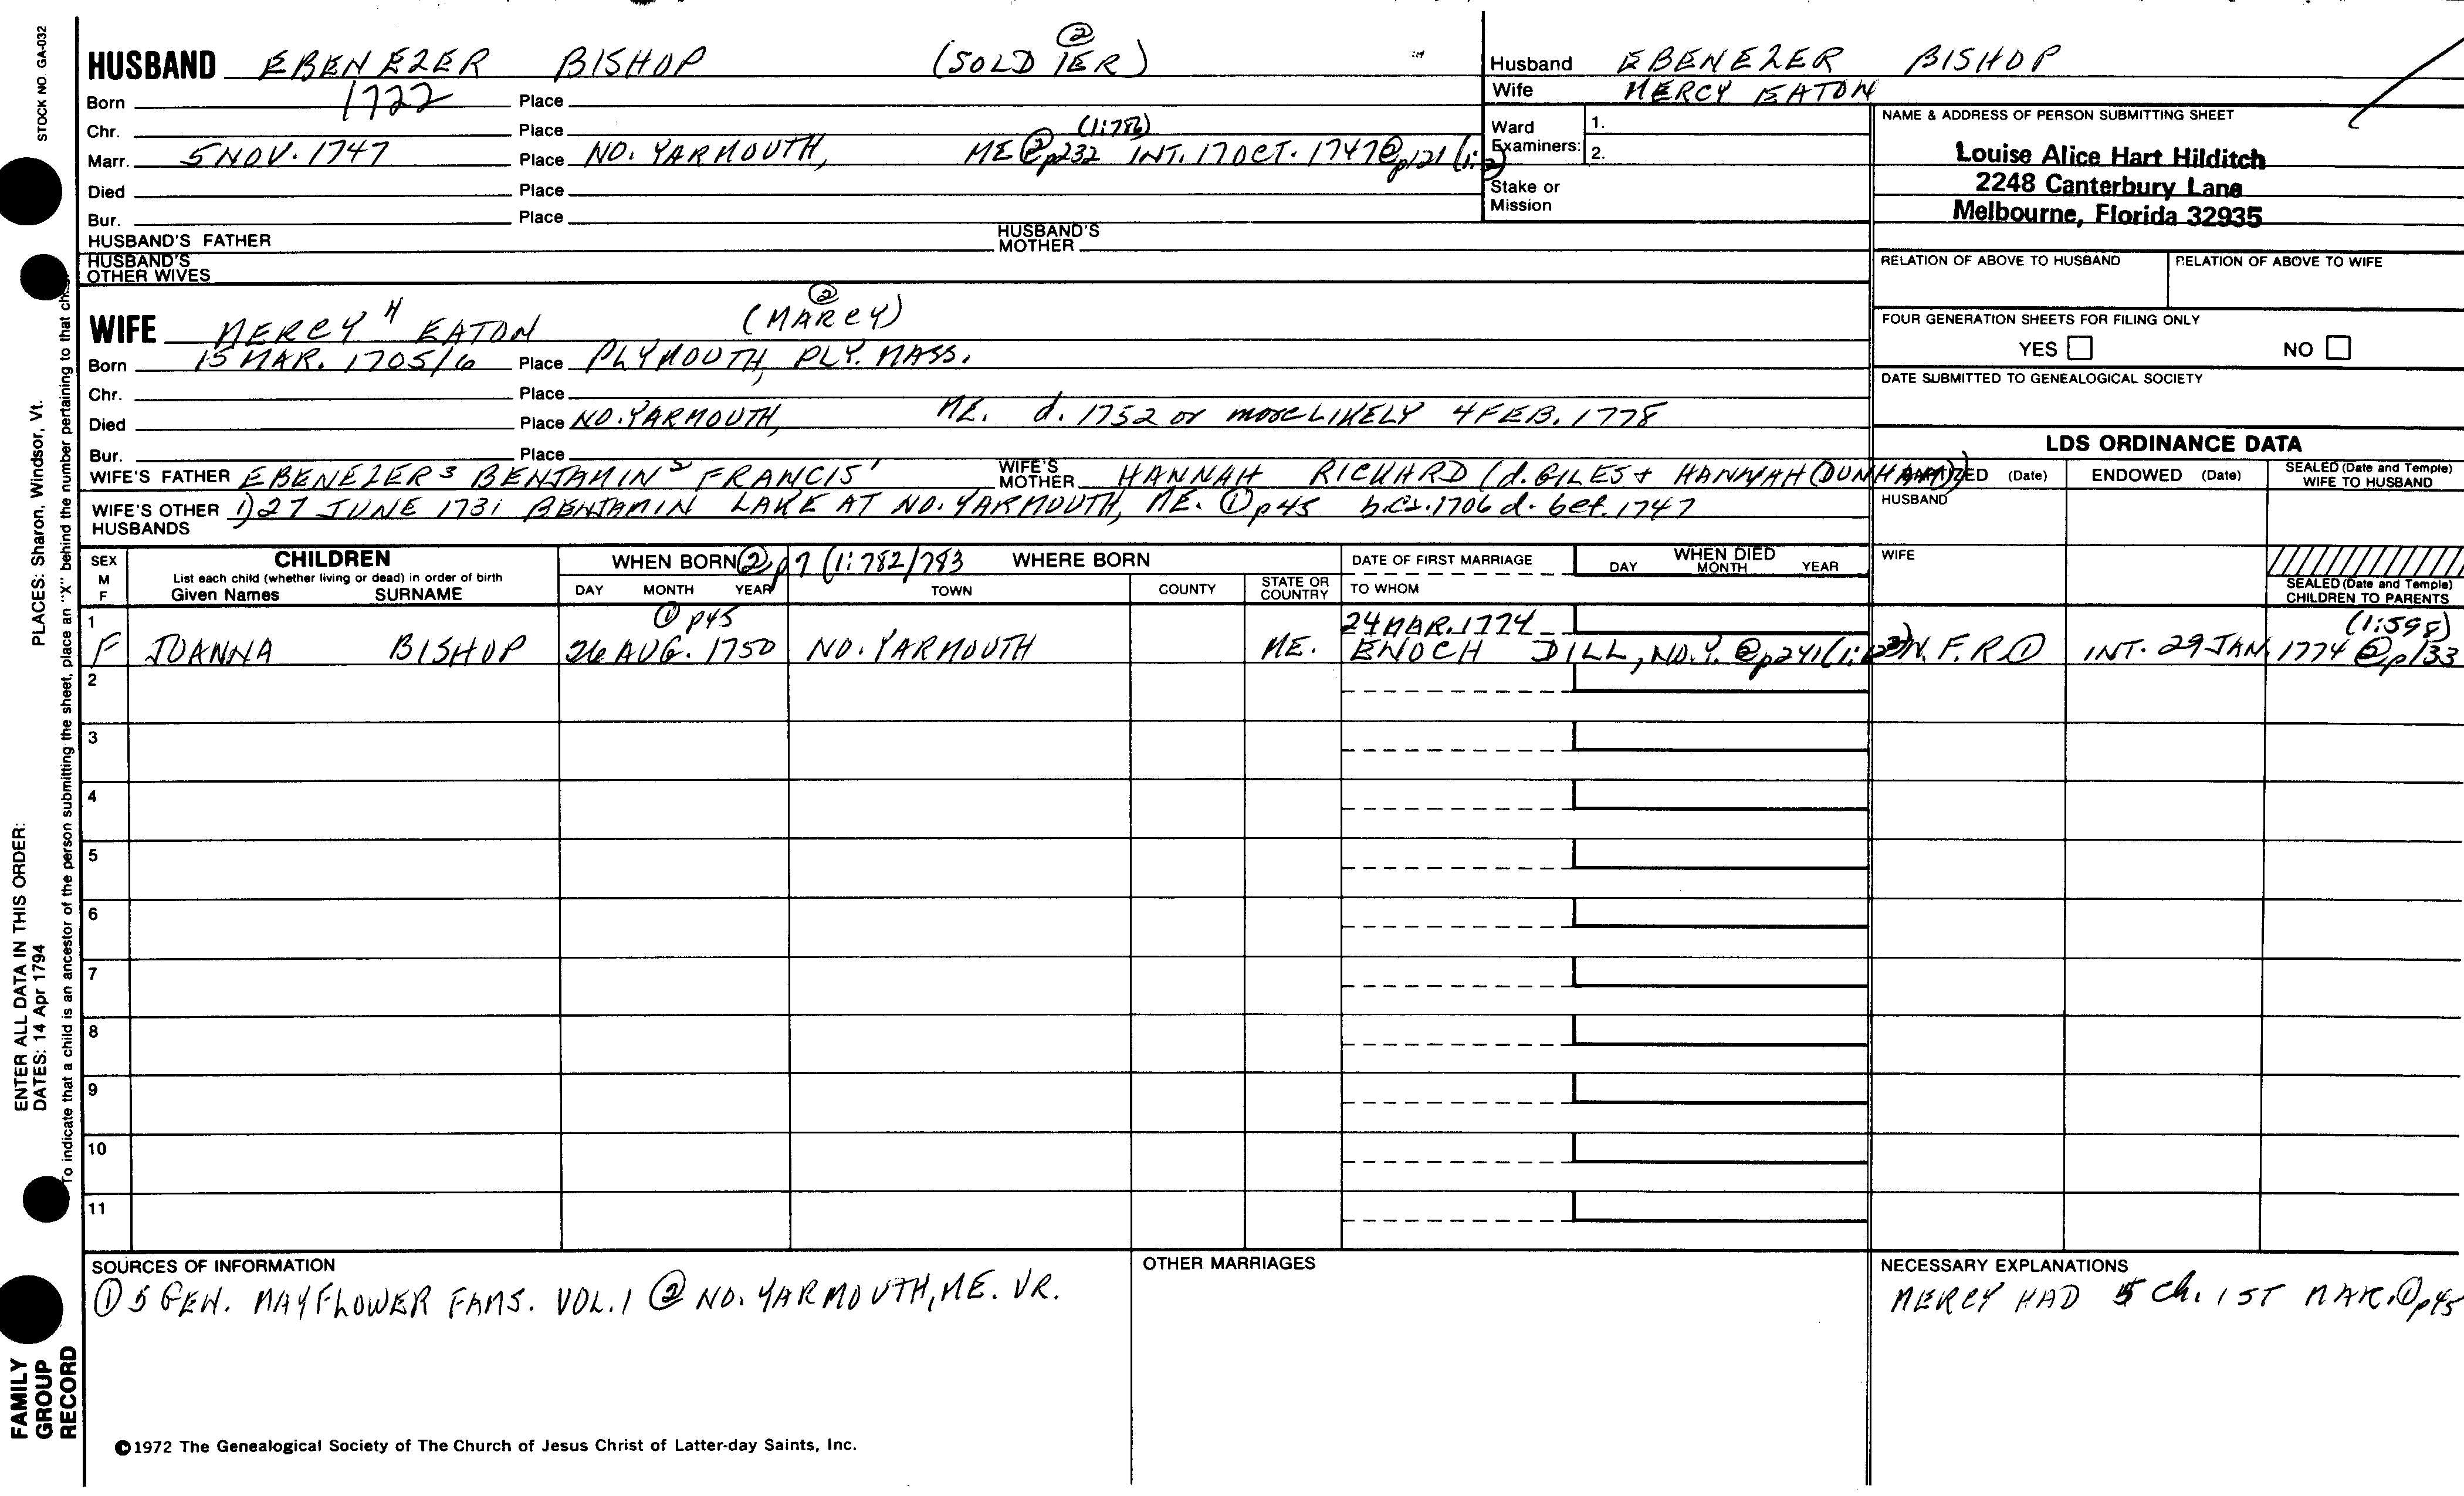 STOCK NO GA-032
HUSBAND EBENEZER BISHOP (SOLDIER) ②
Born 1722 Place
Chr. Place (1:786)
Marr. 5 NOV. 1747 Place NO. YARMOUTH, ME ② p232 INT. 17 OCT. 1747 ② p121 (1:
Died Place
Bur. Place
HUSBAND'S FATHER HUSBAND'S MOTHER
HUSBAND'S OTHER WIVES
Husband EBENEZER BISHOP
Wife MERCY EATON
Ward Examiners: 1.
2.
Stake or Mission
NAME & ADDRESS OF PERSON SUBMITTING SHEET
Louise Alice Hart Hilditch
2248 Canterbury Lane
Melbourne, Florida 32935
RELATION OF ABOVE TO HUSBAND RELATION OF ABOVE TO WIFE
FOUR GENERATION SHEETS FOR FILING ONLY
YES NO
DATE SUBMITTED TO GENEALOGICAL SOCIETY
WIFE MERCY 4 EATON (MARCY) ②
Born 15 MAR. 1705/6 Place PLYMOUTH, PLY. MASS.
Chr. Place
Died Place NO. YARMOUTH, ME. d. 1752 or more LIKELY 4 FEB. 1778
Bur. Place
WIFE'S FATHER EBENEZER 3 BENJAMIN 2 FRANCIS 1 WIFE'S MOTHER HANNAH RICKARD (d. GILES + HANNAH (DUNHAM))
WIFE'S OTHER HUSBANDS 1) 27 JUNE 1731 BENJAMIN LAKE AT NO. YARMOUTH, ME. ① p45 b. ca. 1706 d. bef. 1747
LDS ORDINANCE DATA
(Date) ENDOWED (Date) SEALED (Date and Temple) WIFE TO HUSBAND
HUSBAND
WIFE
SEALED (Date and Temple) CHILDREN TO PARENTS
SEX M F
CHILDREN
List each child (whether living or dead) in order of birth
Given Names SURNAME
WHEN BORN ② p7 (1:782/783 WHERE BORN
DAY MONTH YEAR TOWN COUNTY STATE OR COUNTRY
DATE OF FIRST MARRIAGE
TO WHOM
WHEN DIED
DAY MONTH YEAR
1 ① p45 24 MAR. 1774 (1:598)
F JOANNA BISHOP 26 AUG. 1750 NO. YARMOUTH ME. ENOCH DILL, NO. Y. ② p241 (1: N.F.R ① INT. 29 JAN. 1774 ② p133
2
3
4
5
6
7
8
9
10
11
SOURCES OF INFORMATION
① 5 GEN. MAYFLOWER FAMS. VOL. 1 ② NO. YARMOUTH, ME. VR.
OTHER MARRIAGES
NECESSARY EXPLANATIONS
MERCY HAD 5 Ch. 1ST MAR. ① p45
©1972 The Genealogical Society of The Church of Jesus Christ of Latter-day Saints, Inc.
FAMILY GROUP RECORD
ENTER ALL DATA IN THIS ORDER:
DATES: 14 Apr 1794
PLACES: Sharon, Windsor, Vt.
To indicate that a child is an ancestor of the person submitting the sheet, place an "X" behind the number pertaining to that